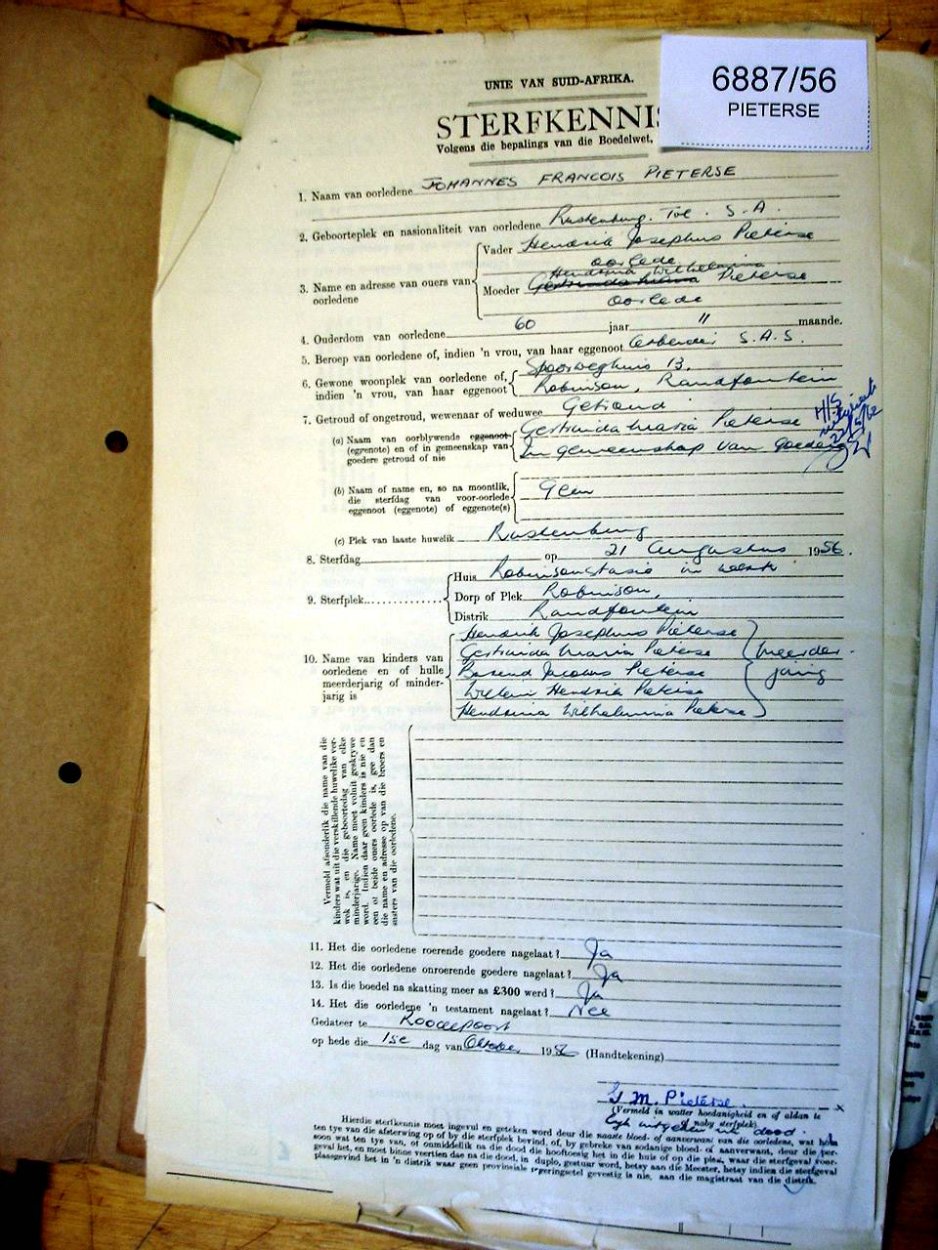 6887/56
PIETERSE
UNIE VAN SUID-AFRIKA.
STERFKENNIS
Volgens die bepalings van die Boedelwet,
1. Naam van oorledene JOHANNES FRANCOIS PIETERSE
2. Geboorteplek en nasionaliteit van oorledene Rustenburg. Tvl. S.A.
3. Name en adresse van ouers van oorledene
Vader Hendrik Josephus Pieterse
oorlede
Hendrina Wilhelmina
Moeder Gertruida Maria Pieterse
oorlede
4. Ouderdom van oorledene 60 jaar " maande.
5. Beroep van oorledene of, indien 'n vrou, van haar eggenoot Arbeider S.A.S.
6. Gewone woonplek van oorledene of, indien 'n vrou, van haar eggenoot
Spoorweghuis 13.
Robinson, Randfontein
7. Getroud of ongetroud, wewenaar of weduwee Getroud
(a) Naam van oorblywende eggenoot (egrenote) en of in gemeenskap van goedere getroud of nie
Gertruida Maria Pieterse
In gemeenskap van goedere
(b) Naam of name en, so na moontlik, die sterfdag van voor-oorlede eggenoot (eggenote) of eggenote(s)
Geen
(c) Plek van laaste huwelik Rustenburg
8. Sterfdag op 21 Augustus 1956.
9. Sterfplek
Huis Robinsonstasie in werk
Dorp of Plek Robinson,
Distrik Randfontein
10. Name van kinders van oorledene en of hulle meerderjarig of minderjarig is
Hendrik Josephus Pieterse
Gertruida Maria Pieterse
Barend Jacobus Pieterse
Willem Hendrik Pieterse
Hendrina Wilhelmina Pieterse
meerder-
jarig
Vermeld afsonderlik die name van die
kinders wat uit die verskillende huwelike ver-
wek is, en die geboortedag van elke
minderjarige. Name moet voluit geskrywe
word. Indien daar geen kinders is nie en
een of beide ouers oorlede is, gee dan
die name en adresse op van die broers en
susters van die oorledene.
11. Het die oorledene roerende goedere nagelaat? Ja
12. Het die oorledene onroerende goedere nagelaat? Ja
13. Is die boedel na skatting meer as £300 werd? Ja
14. Het die oorledene 'n testament nagelaat? Nee
Gedateer te Roodepoort
op hede die 1se dag van Oktober 1956 (Handtekening)
G M. Pieterse.
(Vermeld in watter hoedanigheid en of aldan te
naby sterfplek)
Hierdie sterfkennis moet ingevul en geteken word deur die naaste bloed- of aanverwant van die oorledene, wat
ten tye van die afsterwing op of by die sterfplek bevind, of, by gebreke van sodanige bloed- of aanverwant, deur die per-
soon wat ten tye van, of onmiddellik na die dood die hooftoesig het in die huis of op die plek, waar die sterfgeval voor-
geval het, en moet binne veertien dae na die dood, in duplo, gestuur word, hetsy aan die Meester, hetsy indien die sterfgeval
plaasgevind het in 'n distrik waar geen provinsiale regeringsetel gevestig is nie, aan die magistraat van die distrik.